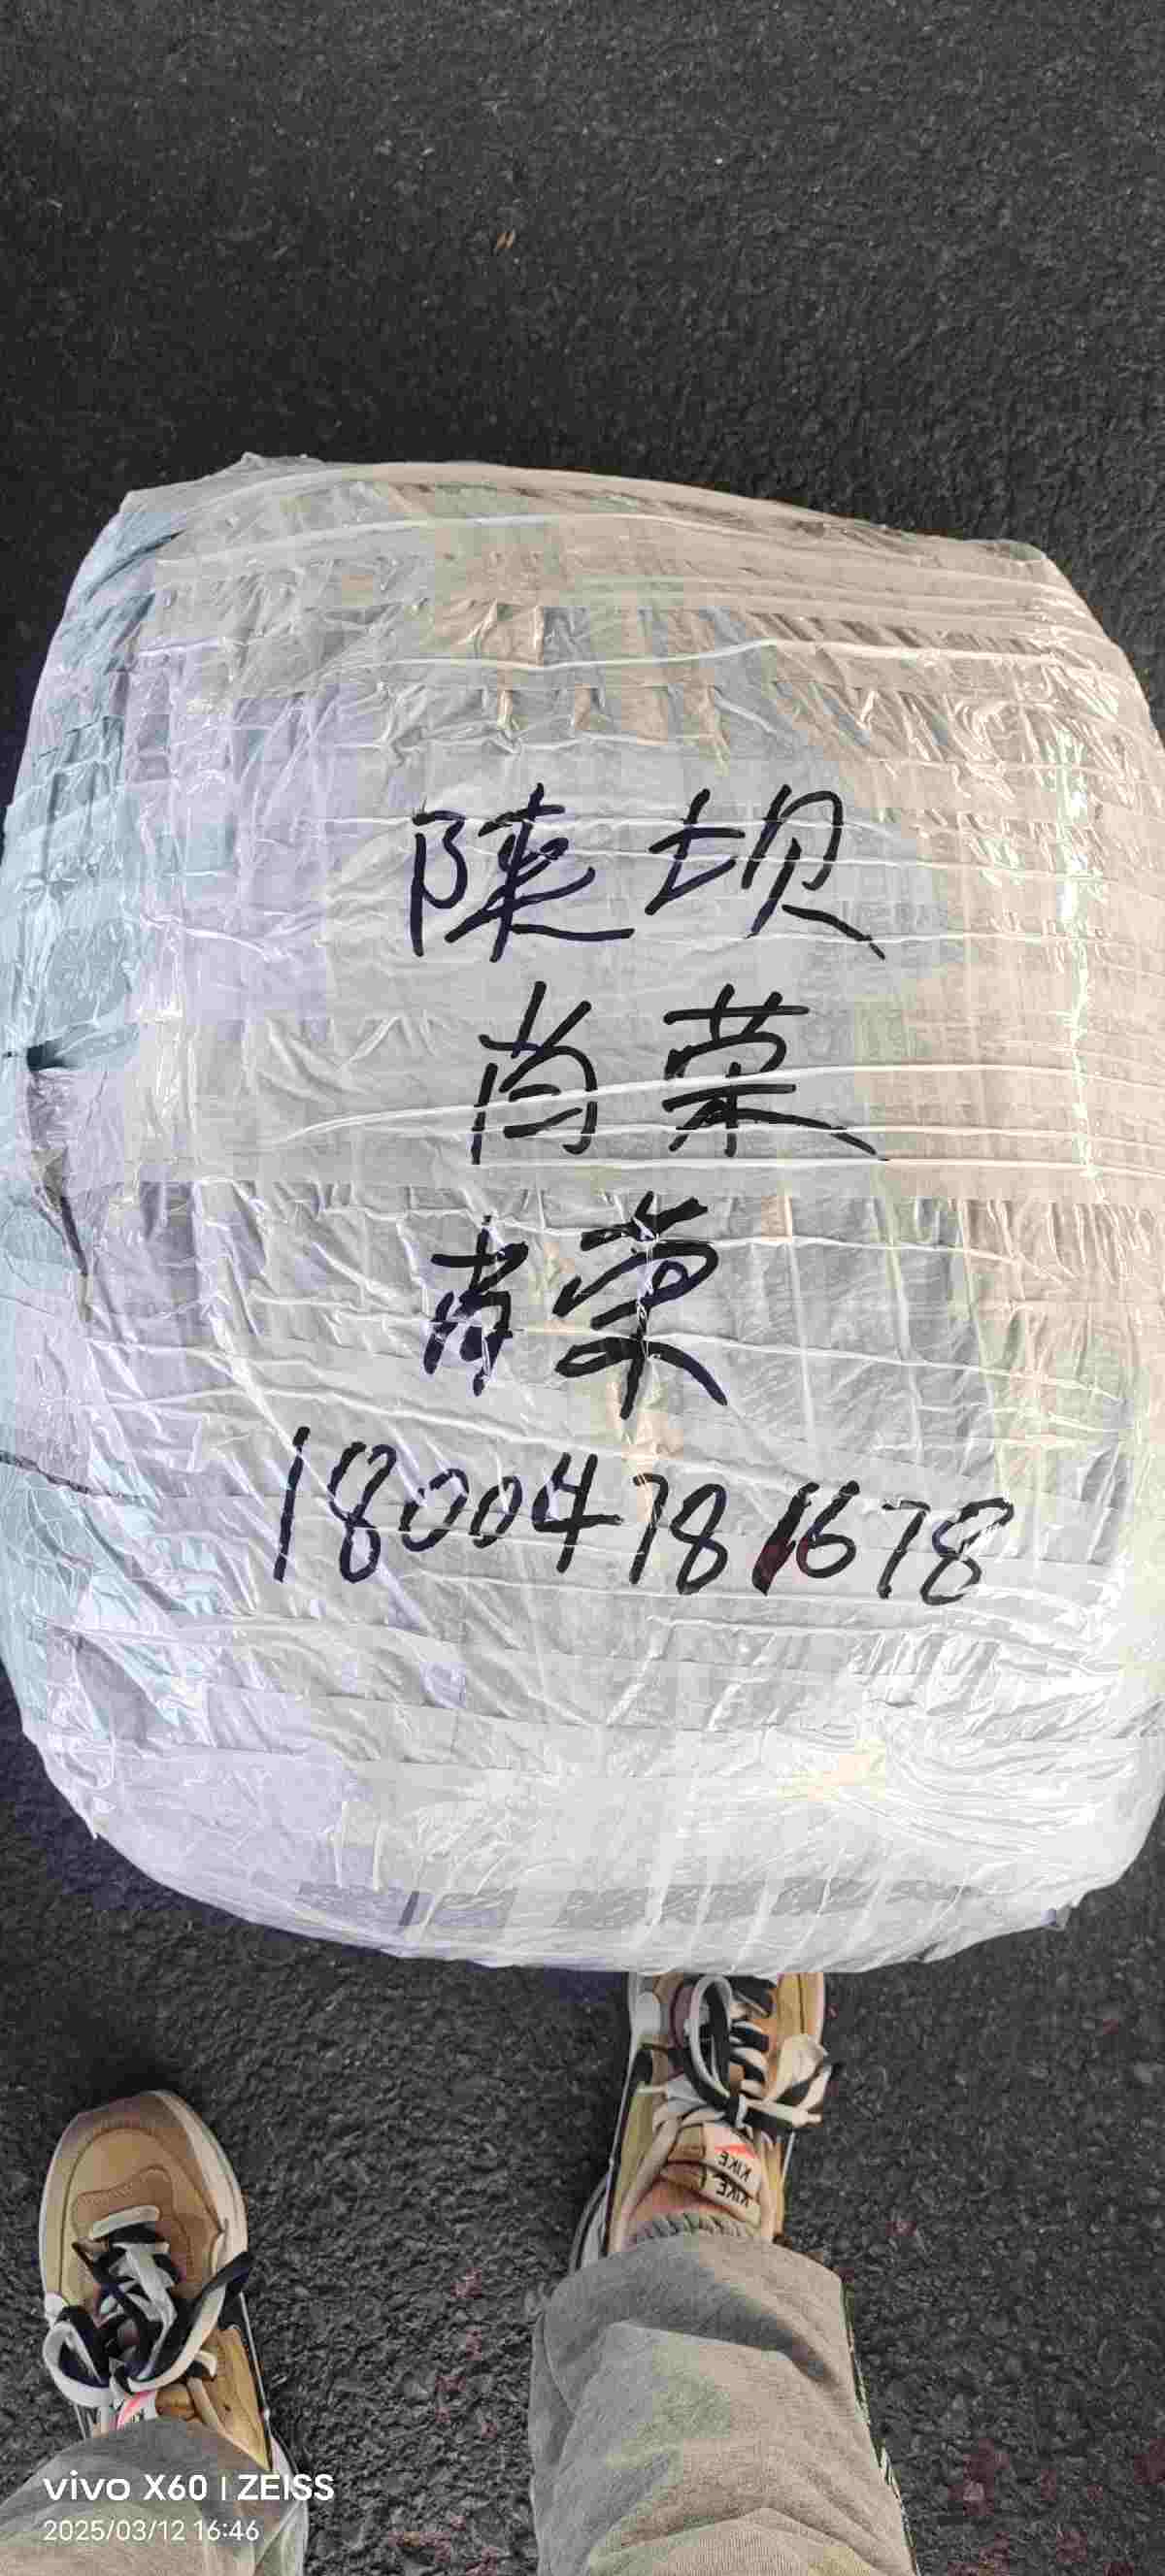 陕坝
尚荣
尚荣
18004781678
KIKE
KIKE
vivo X60 | ZEISS
2025/03/12 16:46